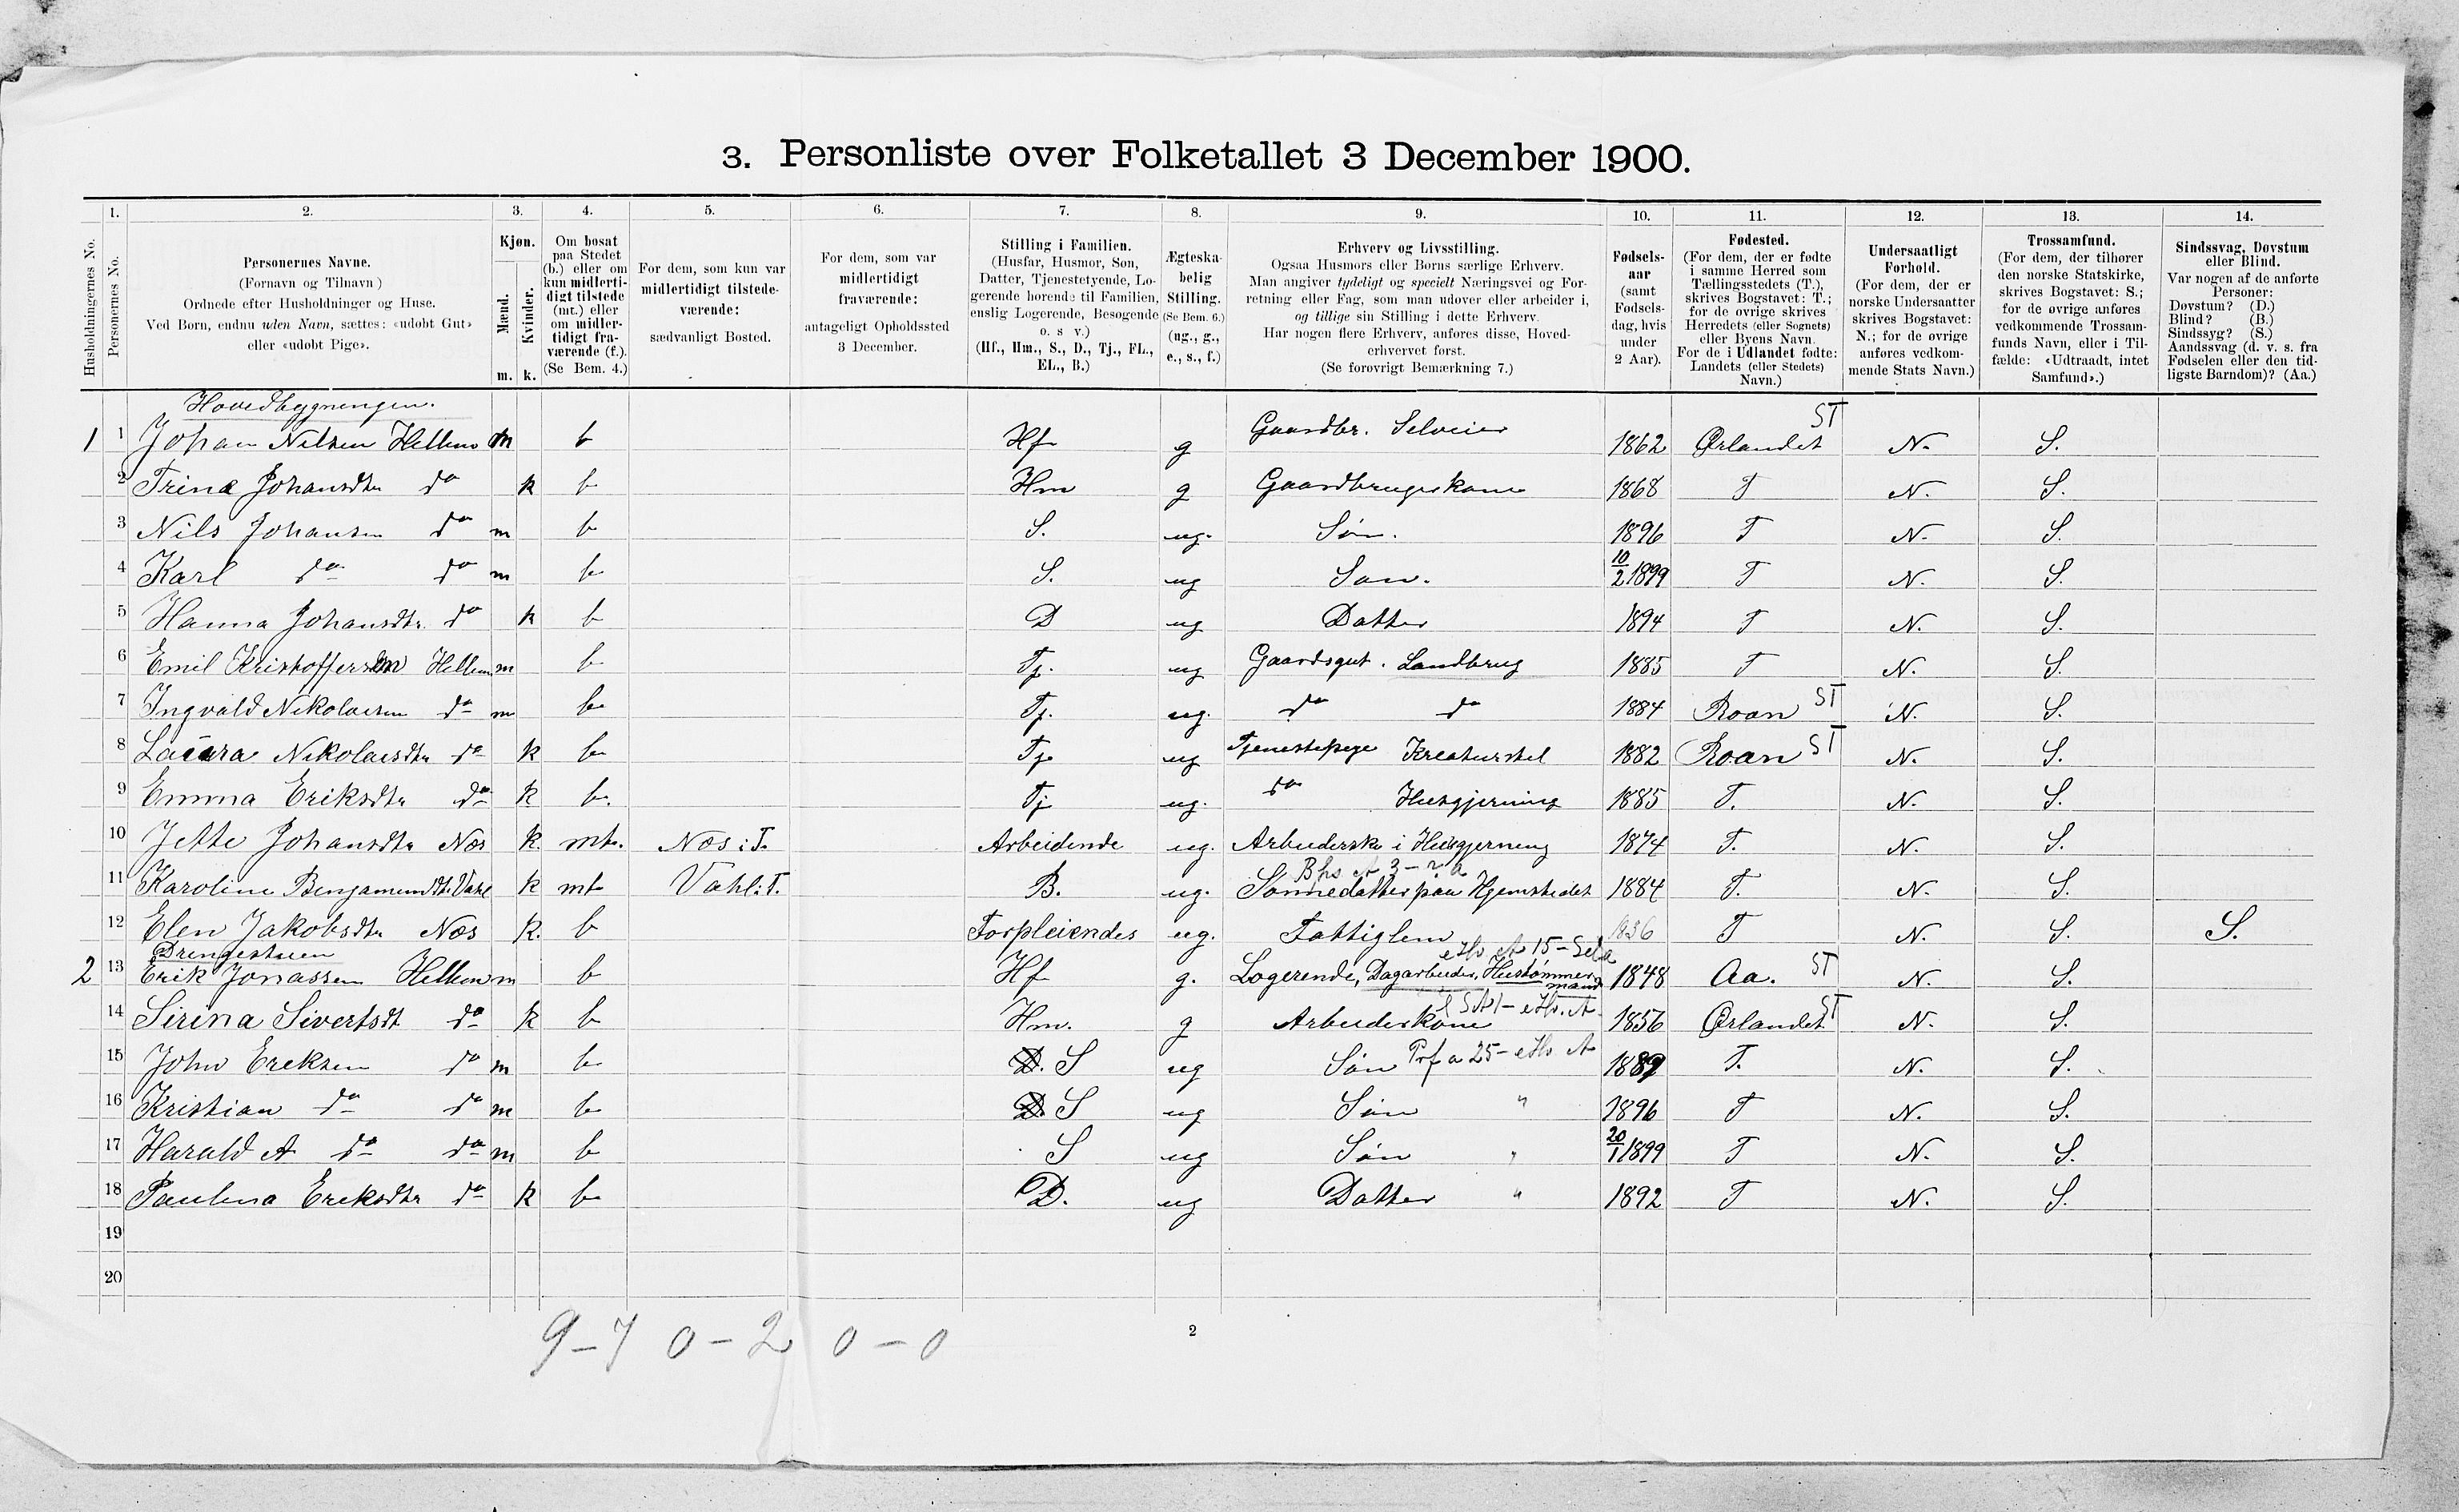 3. Personliste over Folketallet 3 December 1900.
1. 2. 3. 4. 5. 6. 7. 8. 9. 10. 11. 12. 13. 14.
Husholdningernes No.
Personernes No.
Personernes Navne.
(Fornavn og Tilnavn)
Ordnede efter Husholdninger og Huse.
Ved Børn, endnu uden Navn, sættes: «udøbt Gut»
eller «udøbt Pige».
Kjøn.
Mænd.
Kvinder.
m. k.
Om bosat
paa Stedet
(b.) eller om
kun midlerti-
digt tilstede
(mt.) eller
om midler-
tidigt fra-
værende (f.).
(Se Bem. 4.)
For dem, som kun var
midlertidigt tilstede-
værende:
sædvanligt Bosted.
For dem, som var
midlertidigt
fraværende:
antageligt Opholdssted
3 December.
Stilling i Familien.
(Husfar, Husmor, Søn,
Datter, Tjenestetyende, Lo-
gerende hørende til Familien,
enslig Logerende, Besøgende
o. s v.)
(Hf., Hm., S., D., Tj., FL.,
EL., B.)
Ægteska-
belig
Stilling.
(Se Bem. 6.)
(ug., g.,
e., s., f.)
Erhverv og Livsstilling.
Ogsaa Husmors eller Børns særlige Erhverv.
Man angiver tydeligt og specielt Næringsvei og For-
retning eller Fag, som man udøver eller arbeider i,
og tillige sin Stilling i dette Erhverv.
Har nogen flere Erhverv, anføres disse, Hoved-
erhvervet først.
(Se forøvrigt Bemærkning 7.)
Fødsels-
aar
(samt
Fødsels-
dag, hvis
under
2 Aar).
Fødested.
(For dem, der er fødte
i samme Herred som
Tællingsstedets (T.),
skrives Bogstavet: T.;
for de øvrige skrives
Herredets (eller Sognets)
eller Byens Navn.
For de i Udlandet fødte:
Landets (eller Stedets)
Navn.)
Undersaatligt
Forhold.
(For dem, der er
norske Undersaatter
skrives Bogstavet:
N.; for de øvrige
anføres vedkom-
mende Stats Navn.)
Trossamfund.
(For dem, der tilhører
den norske Statskirke,
skrives Bogstavet: S.;
for de øvrige anføres
vedkommende Trossam-
funds Navn, eller i Til-
fælde: «Udtraadt, intet
Samfund».)
Sindssvag, Døvstum
eller Blind.
Var nogen af de anførte
Personer:
Døvstum? (D.)
Blind? (B.)
Sindssyg? (S.)
Aandssvag (d. v. s. fra
Fødselen eller den tid-
ligste Barndom)? (Aa.)
Hovedbygningen.
1 1 Johan Nilsen Hellem m b Hf g Gaardbr. Selveier 1862 Ørlandet ST N. S.
2 Trina Johansdtr do k b Hm g Gaardbrugerkone 1868 T N. S.
3 Nils Johansen do m b S. ug. Søn. 1896 T N. S.
4 Karl do do m b S. ug Søn. 10/2 1899 T N. S.
5 Hanna Johansdtr. do k b D ug Datter 1894 T N. S.
6 Emil Kristoffersen Hellem m b Tj. ug Gaardsgut. Landbrug 1885 T N. S.
7 Ingvald Nikolaisen do m b Tj. ug. do do 1884 Roan ST N. S.
8 Laura Nikolaisdtr do k b Tj. ug Tjenestepige Kreaturstel 1882 Roan ST N. S.
9 Emma Eriksdtr do k b. Tj ug. do Husgjerning 1885 T. N. S.
10 Jette Johansdtr Næs k. mt. Næs i T. Arbeidende ug. Arbeiderske i Husgjerning 1874 T. N. S.
11 Karoline Benjaminsdtr Vahl k mt Vahl i T. B. ug. Sønnedatter paa Hjemstedet 1884 T. N. S.
12 Elen Jakobsdtr Næs k. b Forpleiendes ug. Fattiglem 1836 T N. S. S.
Drengestuen
2 13 Erik Jonassen Hellem m b Hf g. Logerende, Dagarbeider, Hustømmermand 1848 Aa. ST N. S.
14 Sirina Sivertsdt do k b Hm. g Arbeiderkone 1856 Ørlandet ST N. S.
15 John Ereksen do m b S ug Søn 1889 T. N. S.
16 Kristian do do m b S ug Søn " 1896 T N. S.
17 Harald A do do m b S ug Søn " 20/1 1899 T N. S.
18 Paulina Ereksdtr do k b D. ug Datter " 1892 T N. S.
19
20
9-7 0-2 0-0
2